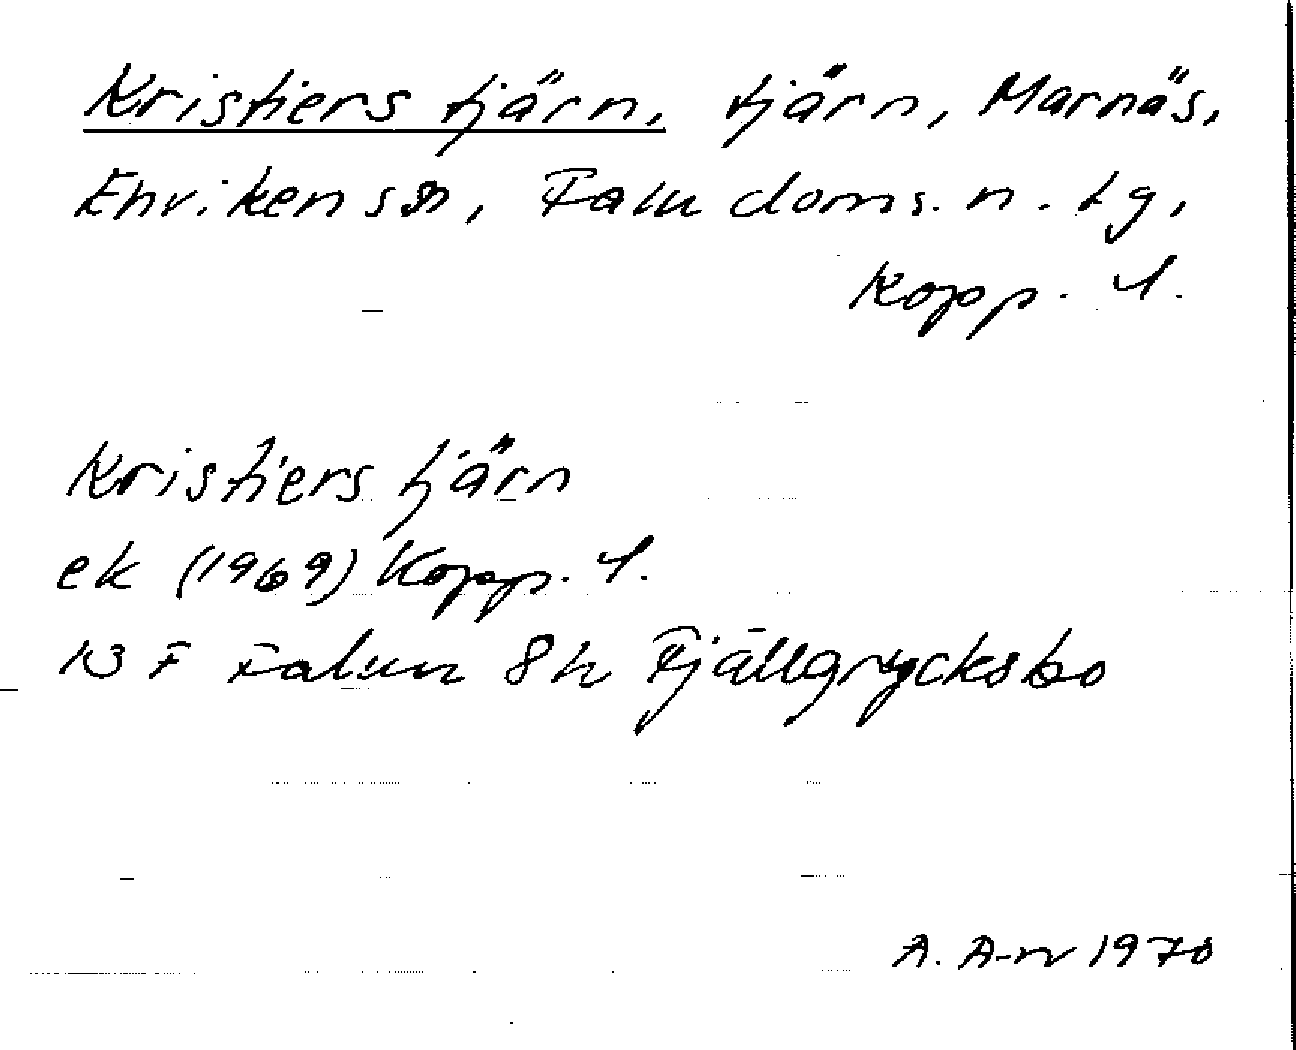 Kristiers tjärn, tjärn, Marnäs,
Envikens sn, Falu doms. n. tg,
Kopp. l.
Kristiers tjärn
ek (1969) Kopp. l.
13 F Falun 8h Fjällgrycksbo
A. A-n 1970